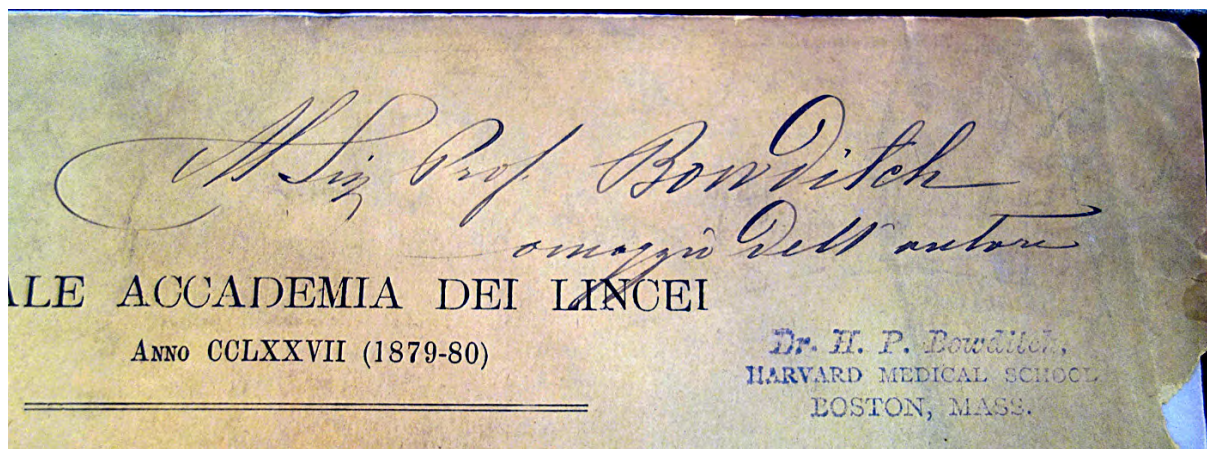 Al Sig Prof. Bowditch
omaggio dell'autore
ALE ACCADEMIA DEI LINCEI
ANNO CCLXXVII (1879-80)
Dr. H. P. Bowditch,
HARVARD MEDICAL SCHOOL
BOSTON, MASS.